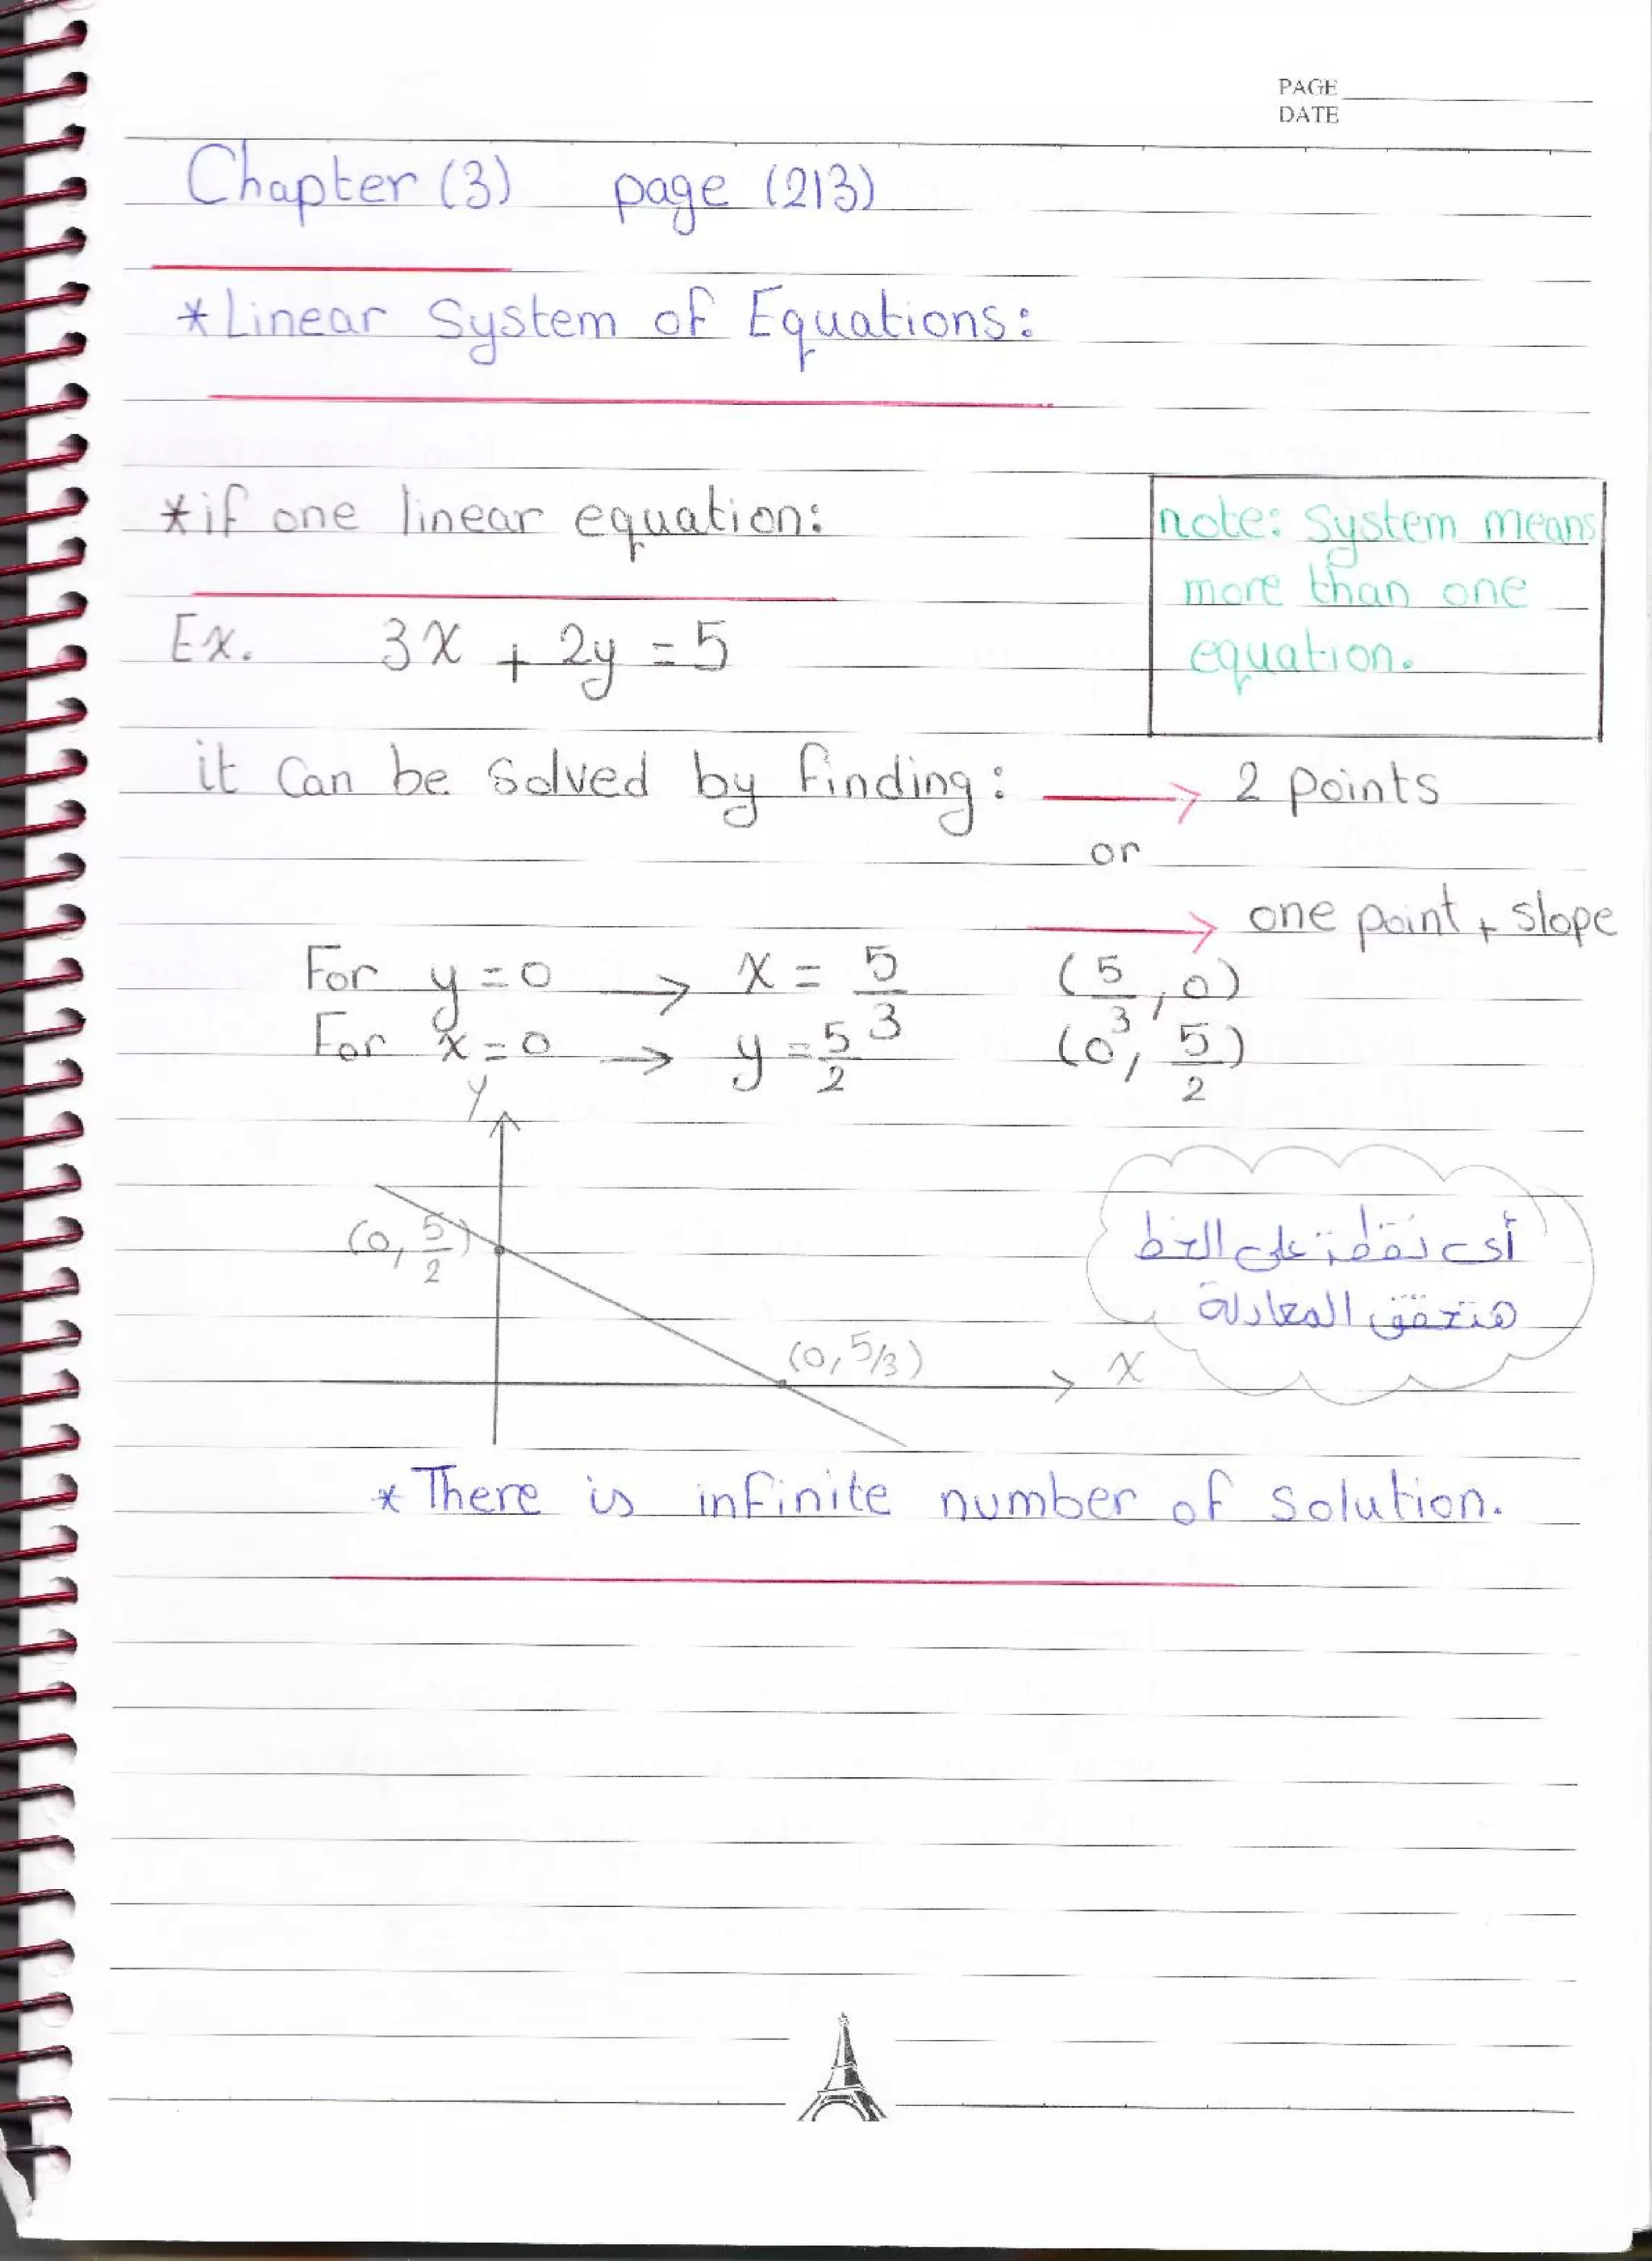 PAGE
DATE
Chapter (3) page (213)
* Linear System of Equations:
* if one linear equation:
note: System means
more than one
equation.
Ex. 3x + 2y = 5
it Can be Solved by Finding: → 2 points
or
→ one point + slope
For y = 0 → x = 5/3 (5/3, 0)
For x = 0 → y = 5/2 (0, 5/2)
y
(0, 5/2)
(0, 5/3)
x
أى نقطة على الخط
هتحقق المعادلة
* There is infinite number of Solution.